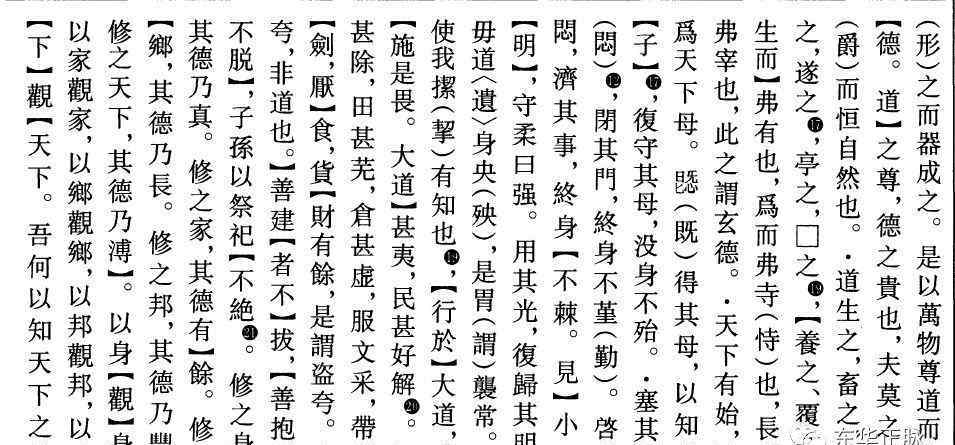 （形）之而器成之。是以萬物尊道而
【德。道】之尊，德之貴也，夫莫之
（爵）而恒自然也。·道生之，畜之
之，遂之⓱，亭之，□之⓳，【養之、覆
生而】弗有也，爲而弗寺（恃）也，長
弗宰也，此之謂玄德。·天下有始，
爲天下母。（既）得其母，以知
【子】，復守其母，没身不殆。·塞其
（悶），閉其門，終身不堇（勤）。啓
悶，濟其事，終身【不棘。見】小
【明】，守柔曰强。用其光，復歸其明
毋道〈遺〉身央（殃），是胃（謂）襲常。
使我摞（挈）有知也，【行於】大道，
【施是畏。大道】甚夷，民甚好解。
甚除，田甚芜，倉甚虚，服文采，帶
【劍，厭】食，貨【財有餘，是謂盗夸。
夸，非道也。】善建【者不】拔，【善抱
不脱】，子孫以祭祀【不絶。修之身
其德乃真。修之家，其德有】餘。修
【鄉，其德乃長。修之邦，其德乃豐
修之天下，其德乃溥】。以身【觀】身
以家觀家，以鄉觀鄉，以邦觀邦，以
【下】觀【天下。吾何以知天下之